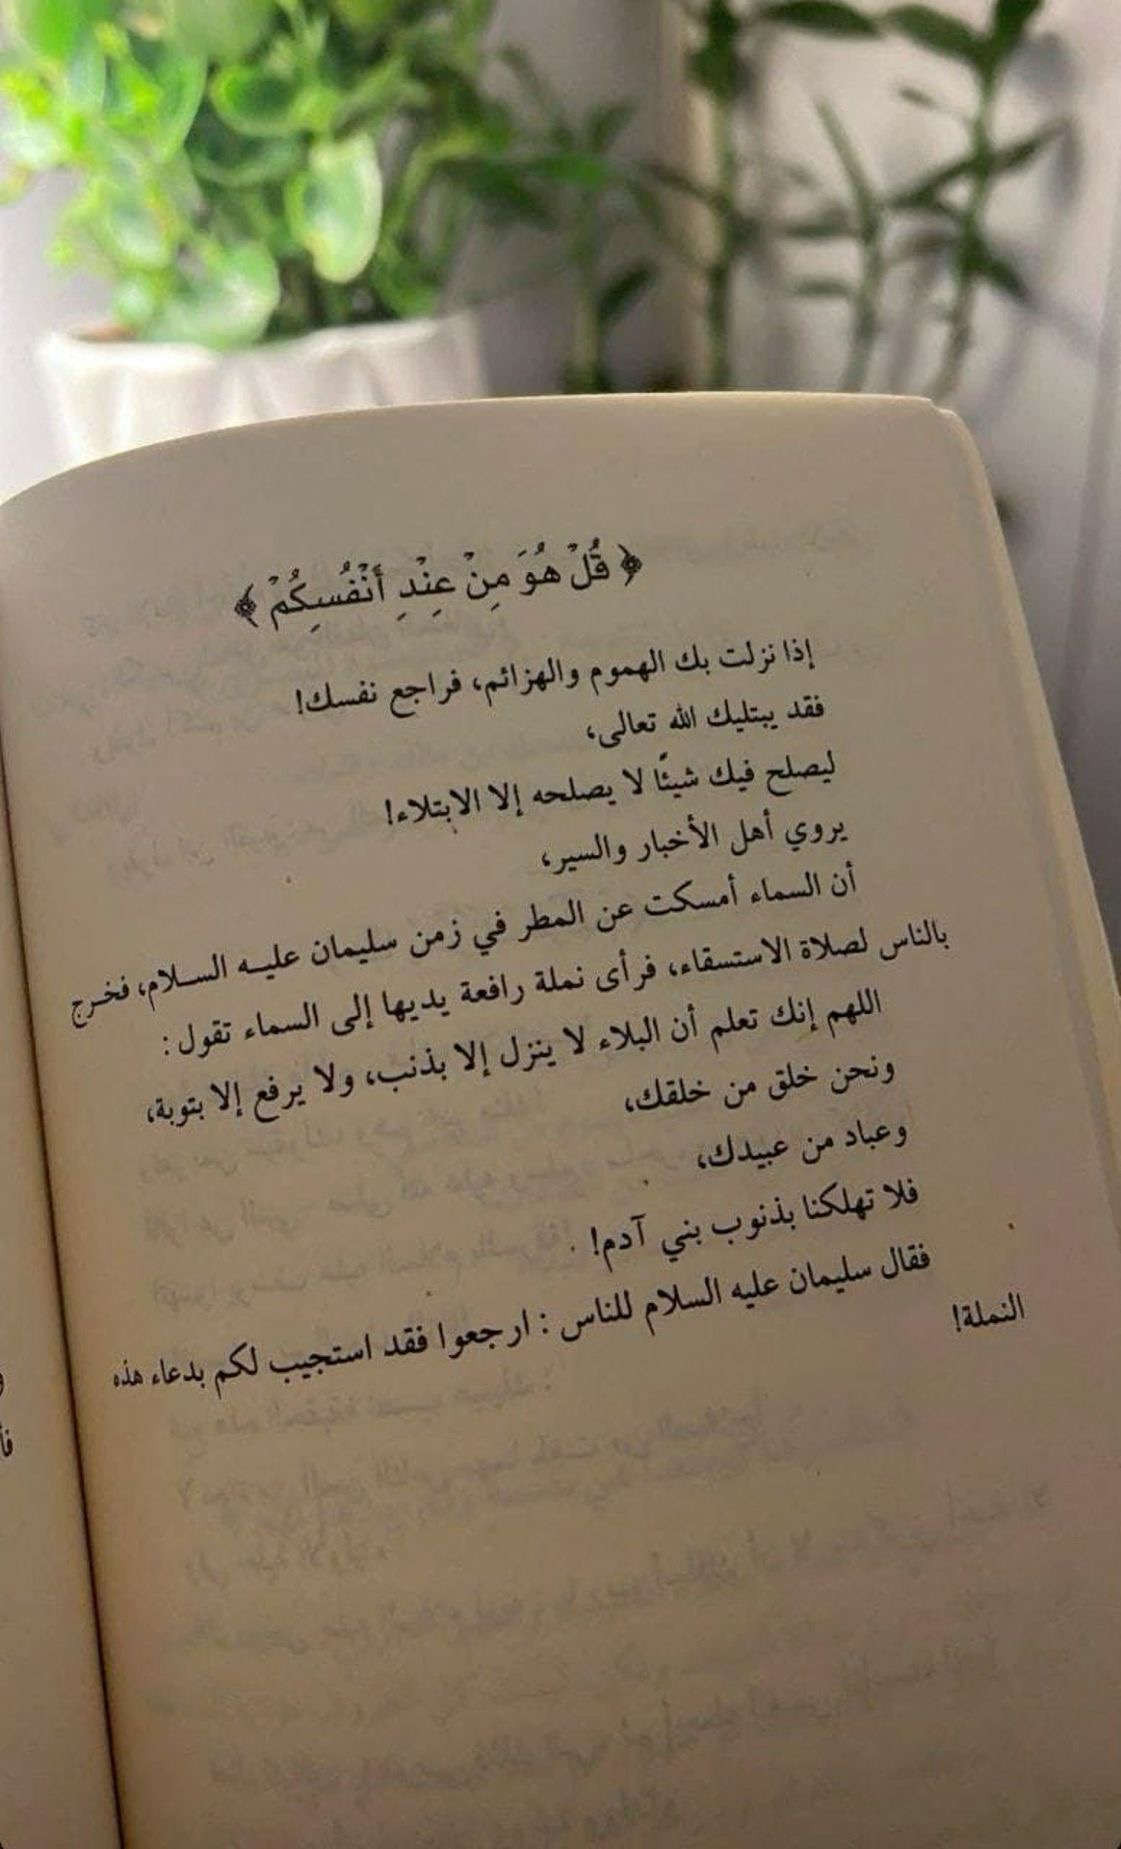 ﴿ قُلْ هُوَ مِنْ عِنْدِ أَنْفُسِكُمْ ﴾
إذا نزلت بك الهموم والهزائم، فراجع نفسك!
فقد يبتليك الله تعالى،
ليصلح فيك شيئًا لا يصلحه إلا الابتلاء!
يروي أهل الأخبار والسير،
أن السماء أمسكت عن المطر في زمن سليمان عليـه السـلام، فخـرج
بالناس لصلاة الاستسقاء، فرأى نملة رافعة يديها إلى السماء تقول :
اللهم إنك تعلم أن البلاء لا ينزل إلا بذنب، ولا يرفع إلا بتوبة،
ونحن خلق من خلقك،
وعباد من عبيدك،
فلا تهلكنا بذنوب بني آدم!
فقال سليمان عليه السلام للناس : ارجعوا فقد استجيب لكم بدعاء هذه
النملة!